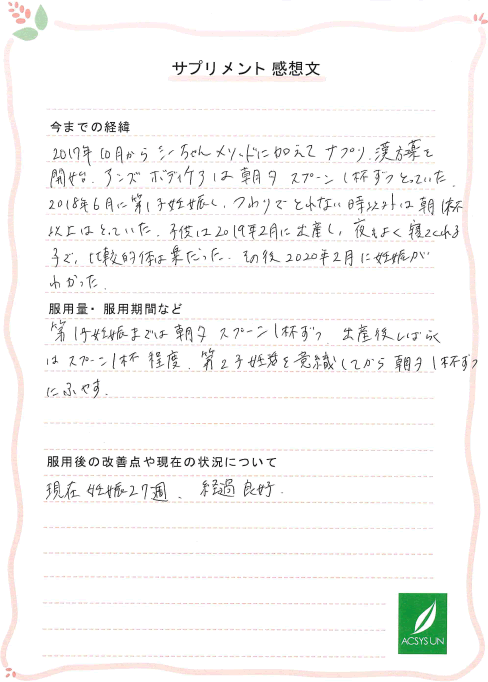 サプリメント 感想文
今までの経緯
2017年10月から シーちゃんメソッドに加えて サプリ、漢方薬を
開始。アンズ ボディケアは朝夕 スプーン1杯ずつとっていた。
2018年6月に第1子妊娠し、つわりでとれない時以外は朝1杯
以上はとっていた。子供は2019年2月に出産し、夜もよく寝てくれる
子で、比較的体は楽だった。その後2020年2月に妊娠が
わかった。
服用量・服用期間など
第1子妊娠までは朝夕 スプーン1杯ずつ 出産後しばらく
はスプーン1杯 程度。第2子妊活を意識してから 朝夕1杯ずつ
にふやす。
服用後の改善点や現在の状況について
現在 妊娠27週、経過良好。
ACSYSUN